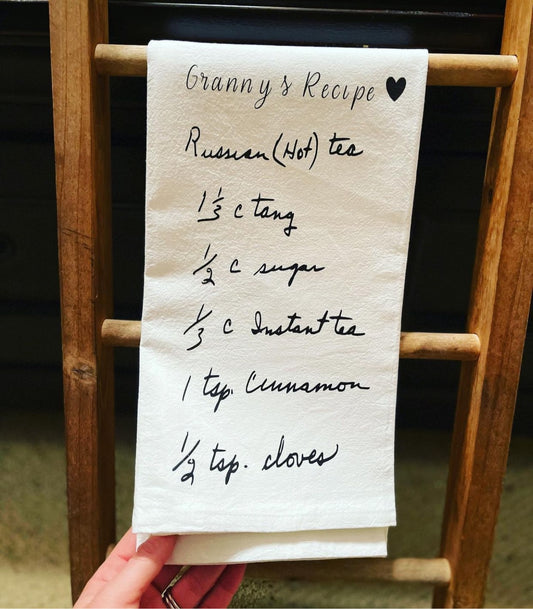 Granny's Recipe ♥
Russian (Hot) tea
1 1/3 c tang
1/2 c sugar
1/3 c Instant tea
1 tsp. Cinnamon
1/2 tsp. cloves